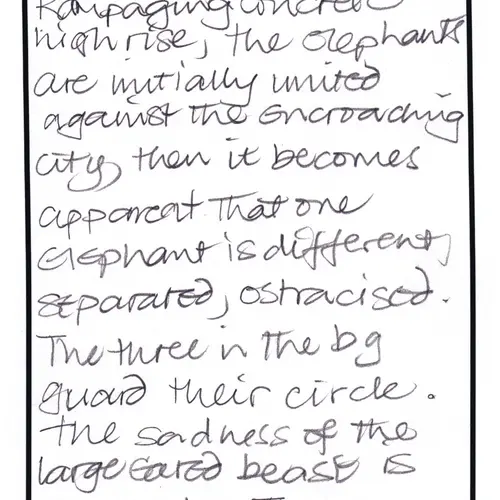 Rampaging concrete
high rise, the elephants
are initially united
against the encroaching
city, then it becomes
apparent that one
elephant is different,
separated, ostracised.
The three in the bg
guard their circle.
The sadness of the
large eared beast is